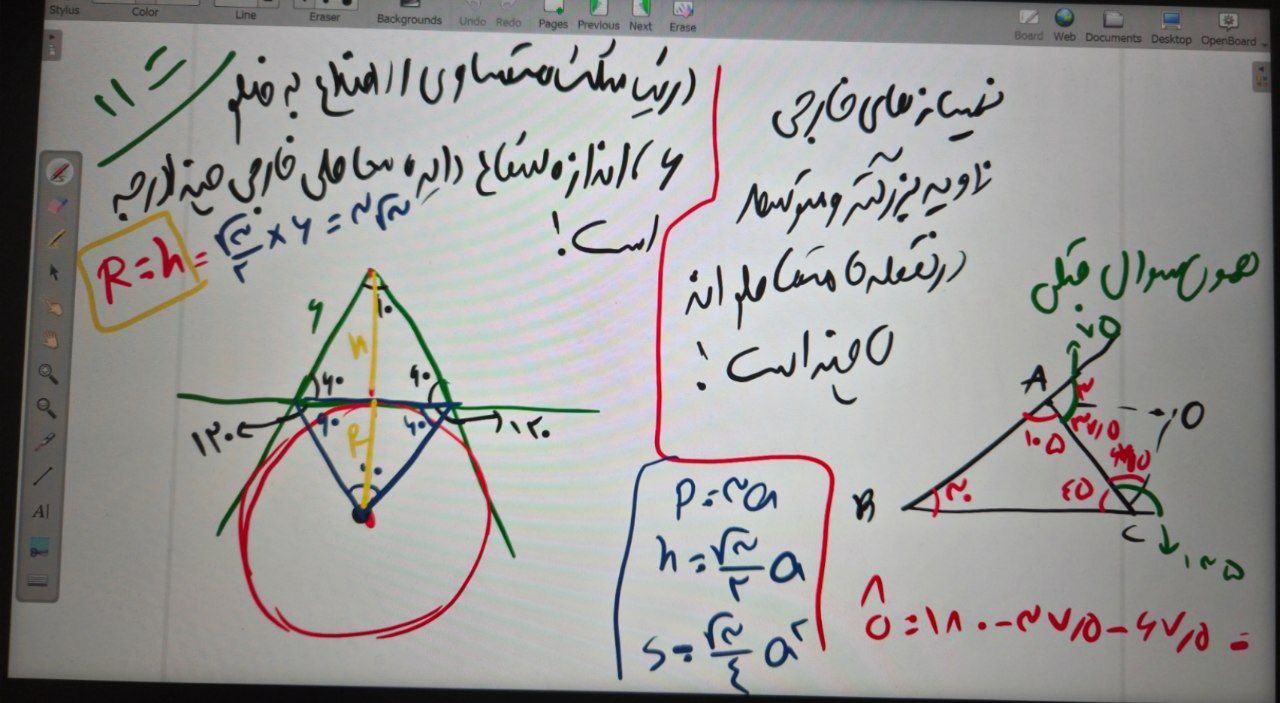 Stylus Color Line Eraser Backgrounds Undo Redo Pages Previous Next Erase Board Web Documents Desktop OpenBoard
در یک مثلث متساوی الاضلاع به ضلع
۶، اندازه شعاع دایره محاطی خارجی چقدر
است!
R = h = √۳/۲ × ۶ = ۳√۳
۶
h
۶۰ ۶۰
۱۲۰ ۱۲۰
۶۰ ۶۰
R
نیمسازهای خارجی
زاویه بزرگتر و متوسط
در نقطه O متقاطع اند
O چند است!
همون سوال قبلی
۷۵
A
O
۱۰۵ ۳۷/۵
B ۳۰ ۴۵ C
۱۳۵
Ô = ۱۸۰ - ۳۷/۵ - ۶۷/۵ =
P = ۳a
h = √۳/۲ a
S = √۳/۴ a²